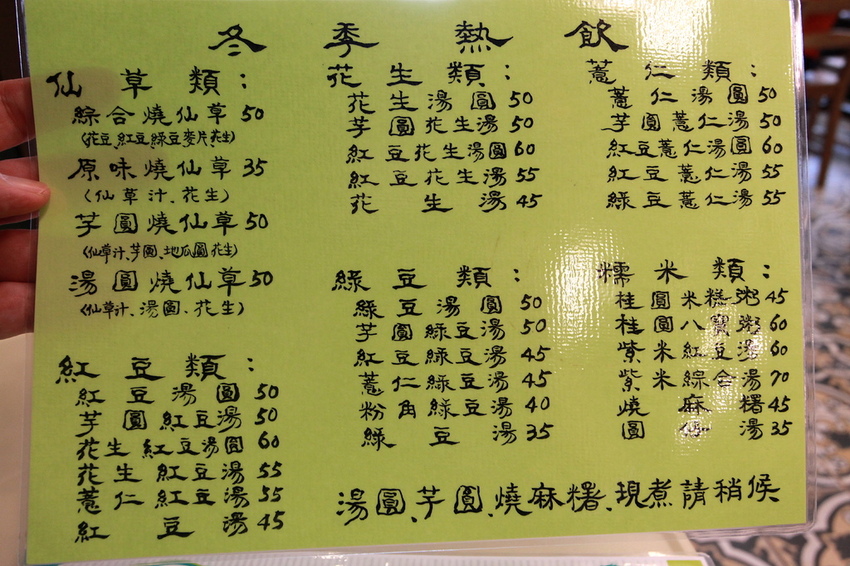 冬季熱飲
仙草類：
綜合燒仙草50
(花豆.紅豆綠豆麥片花生)
原味燒仙草35
(仙草汁.花生)
芋圓燒仙草50
(仙草汁.芋圓.地瓜圓花生)
湯圓燒仙草50
(仙草汁.湯圓.花生)
紅豆類：
紅豆湯圓50
芋圓紅豆湯50
花生紅豆湯圓60
花生紅豆湯55
薏仁紅豆湯55
紅豆湯45
花生類：
花生湯圓50
芋圓花生湯50
紅豆花生湯圓60
紅豆花生湯55
花生湯45
綠豆類：
綠豆湯圓50
芋圓綠豆湯50
紅豆綠豆湯45
薏仁綠豆湯45
粉角綠豆湯40
綠豆湯35
薏仁類：
薏仁湯圓50
芋圓薏仁湯50
紅豆薏仁湯圓60
紅豆薏仁湯55
綠豆薏仁湯55
糯米類：
桂圓米糕粥45
桂圓八寶粥60
紫米紅豆湯60
紫米綜合湯70
燒麻糬45
圓仔湯35
湯圓、芋圓、燒麻糬、現煮請稍候